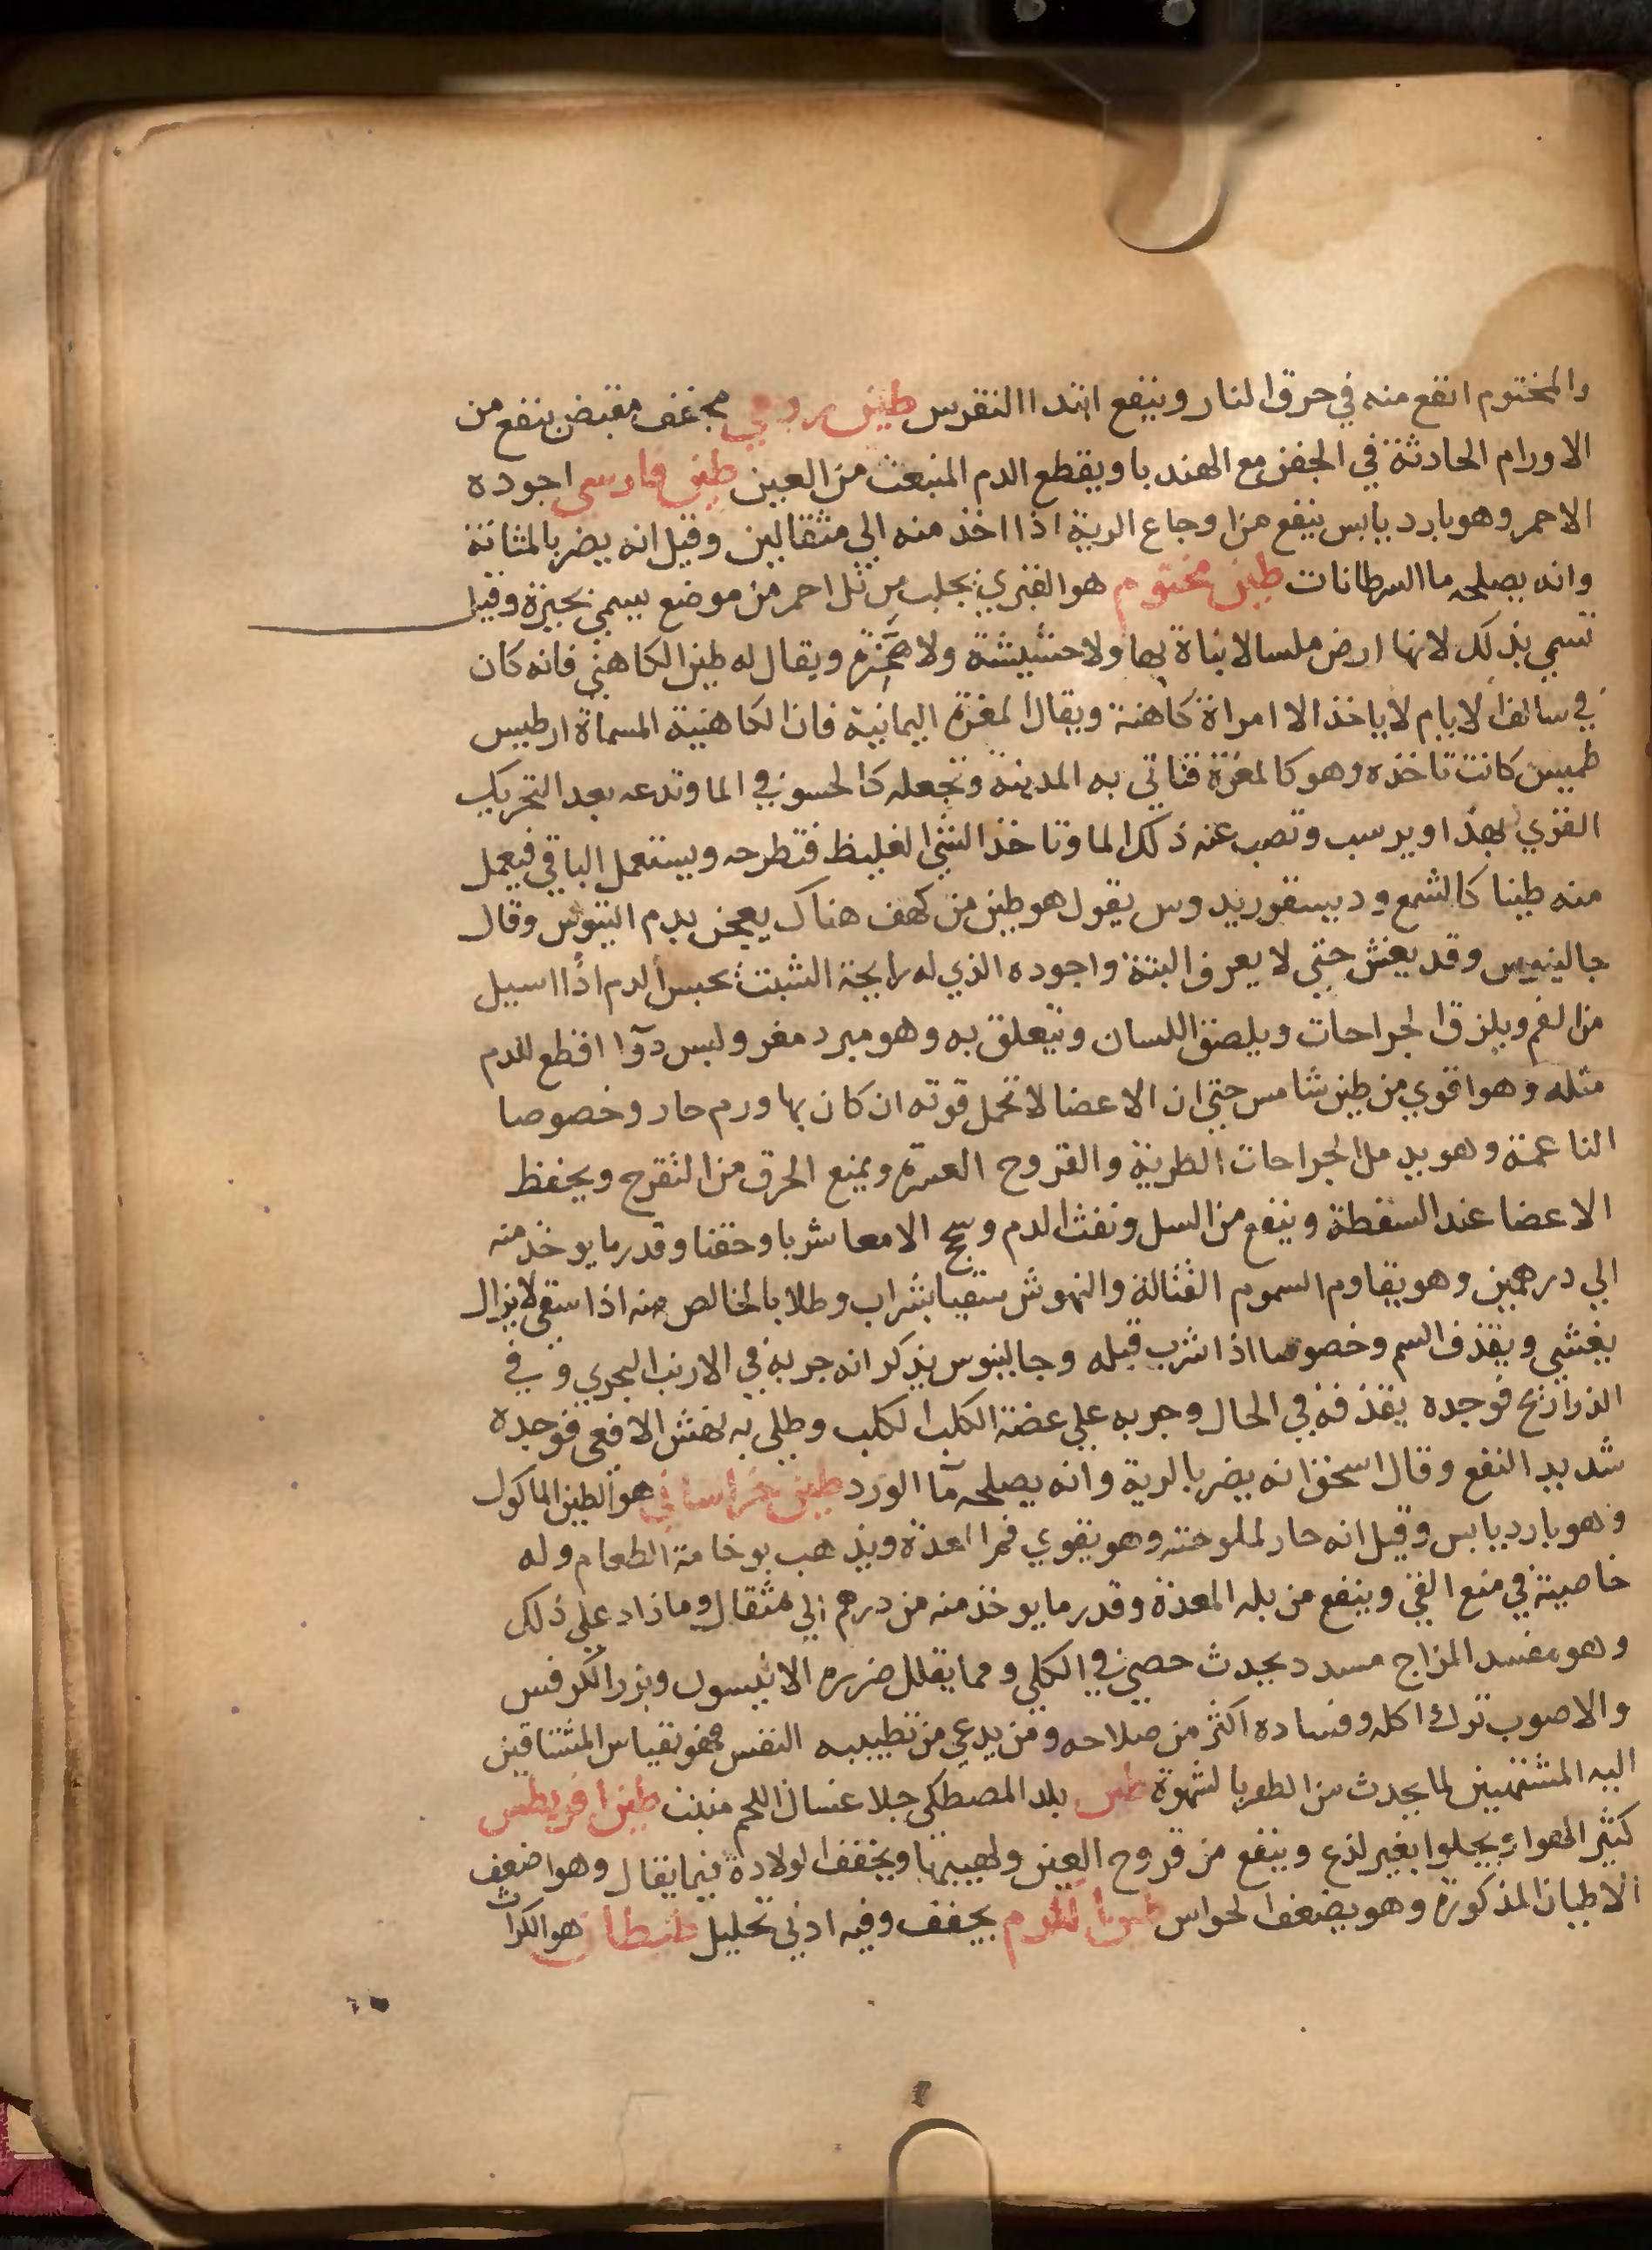 والمختوم انفع منه في حرق النار وينفع ابتدا النقرس طين رومي مجفف مقبض ينفع من
الاورام الحادثة في الجفن مع الهندبا ويقطع الدم المنبعث من العين طين فارسي اجوده
الاحمر وهو بارد يابس ينفع من اوجاع الرية اذا اخذ منه الي مثقالين وقيل انه يضر بالمثانة
وانه يصلحه ما السرطانات طين مختوم هو القبري يجلب من تل احمر من موضع يسمي بحيزة وقيل
تسمي بذلك لانها ارض ملسا لا نباة بها ولا حشيشة ولا ويقال له طين الكاهني فانه كان
في سالف الايام لا ياخذ الا امراة كاهنة ويقال المغرة اليمانية فان الكاهنية المسماة ارطيس
طميس كانت تاخذه وهو كالمغرة فتاتي به المدينة وتجعله كالحسو في الما وتدعه بعد التحريك
القزي يهدا ويرسب وتصب عنه ذلك الما وتاخذ الشي الغليظ فتطرحه ويستعمل الباقي فيعمل
منه طينا كالشمع وديسقوريدوس يقول هو طين من كهف هناك يعجن بدم التيوس وقال
جالينوس وقد يغش حتي لا يعرف البتة واجوده الذي له رايحة الشبت يحبس الدم اذا اسيل
من الفم ويلزق الجراحات ويلصق اللسان ويتعلق به وهو مبرد مغر وليس دوآا اقطع للدم
مثله وهو اقوي من طين شامس حتي ان الاعضا لا تحمل قوته ان كان بها ورم حار وخصوصا
الناعمة وهو يدمل الجراحات الطرية والقروح العسرة ويمنع الحرق من التقرح ويحفظ
الاعضا عند السقطة وينفع من السل ونفث الدم وسحج الامعا شربا وحقنا وقدر ما يوخذ منه
الي درهمين وهو يقاوم السموم القتالة والنهوش سقيا بشراب وطلا بالخالص منه اذا سقي لا يزال
يغثي ويقذف السم وخصوصا اذا شرب قبله وجالينوس يذكر انه جربه في الارنب البحري وفي
الذراريح فوجده يقذفه في الحال وجربه علي عضة الكلب الكلب وطلي به نهش الافعي فوجده
شديد النفع وقال اسحق انه يضر بالرية وانه يصلحه مآ الورد طين خراساني هو الطين الماكول
وهو بارد يابس وقيل انه حار لملوحته وهو يقوي فم المعدة ويذهب بوخامة الطعام وله
خاصية في منع القي وينفع من بله المعدة وقدر ما يوخذ منه من درهم الي مثقال وما زاد علي ذلك
وهو مفسد المزاج مسدد يحدث حصي في الكلي ومما يقلل ضرره الانيسون وبزر الكرفس
والاصوب ترك اكله وفساده اكثر من صلاحه ومن يدعي من تطييبه النفس فهو بقياس المشتاقين
اليه المشتهيين لما يحدث من الظفر بالشهوة طين بلد المصطكي جلا غسال اللحم منبت طين اقريطس
كثير الهواء يجلوا بغير لذع وينفع من قروح العين ولهيبها ويخفف الولادة فيما يقال وهو اضعف
الاطيان المذكورة وهو يضعف الحواس يجفف وفيه ادني تحليل هو الكراث